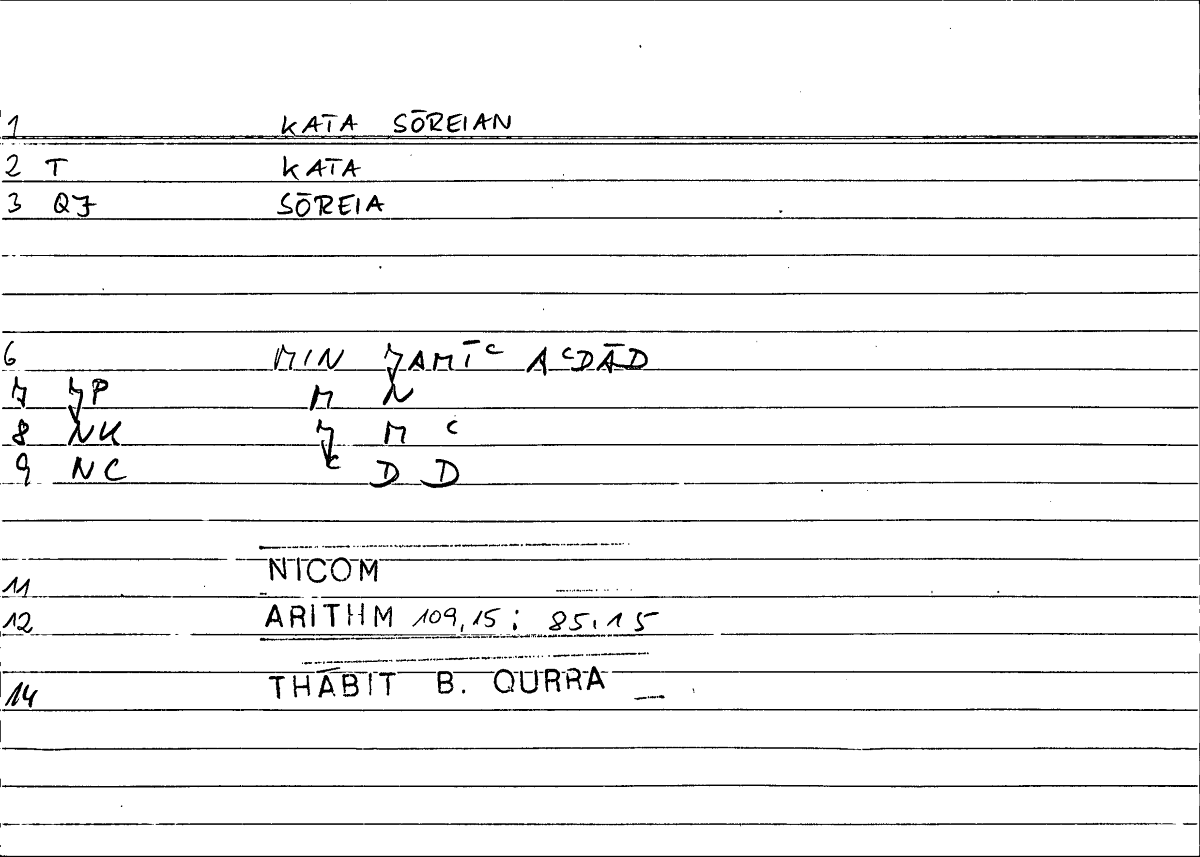 1 KATA SŌREIAN
2 T KATA
3 QJ SŌREIA
6 MIN J̌AMĪᶜ AᶜDĀD
7 J̌P M N
8 NK J̌ M ᶜ
9 NC ᶜ D D
11 NICOM
12 ARITHM 109,15; 85,15
14 THĀBIT B. QURRA